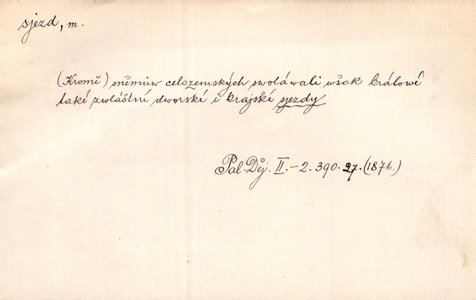 sjezd, m.
(Kromě) sněmův celozemských svolávali však králové
také zvláštní dvorské i krajské sjezdy
Pal. Děj. II. - 2. 390. 27. (1876.)